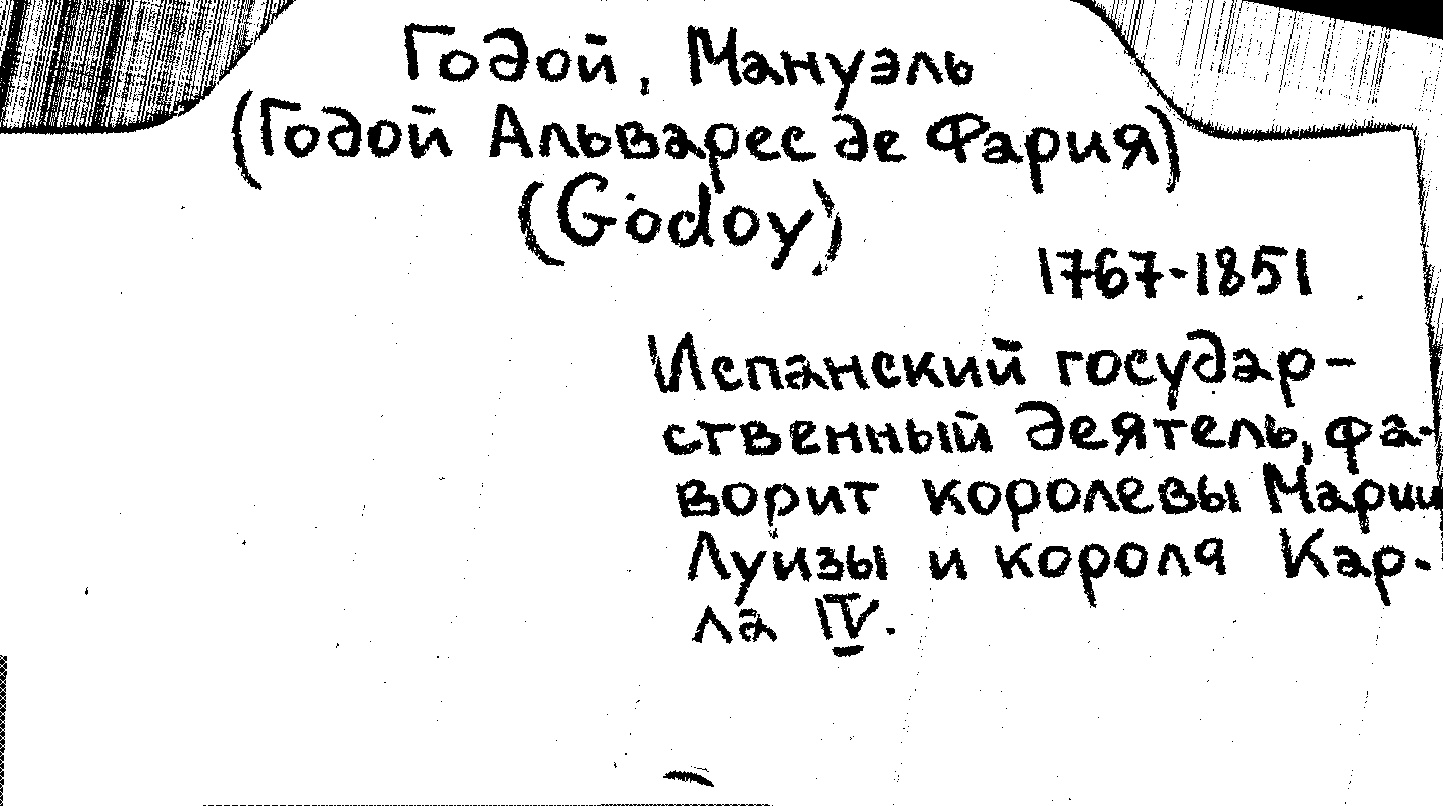 Годой, Мануэль
(Годой Альварес де Фария)
(Godoy)
1767-1851
Испанский государ-
ственный деятель, фа-
ворит королевы Марии
Луизы и короля Кар-
ла IV.